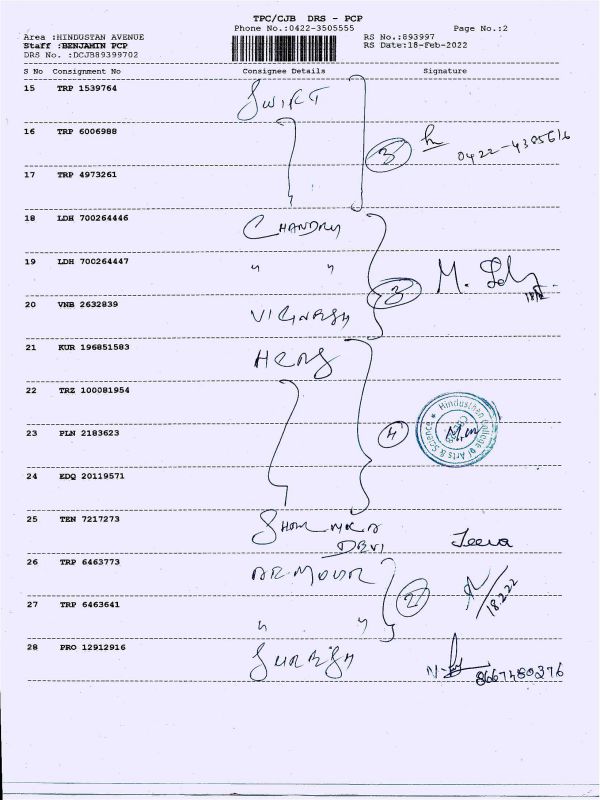 TPC/CJB DRS - PCP
Phone No.:0422-3505555 Page No.:2
Area :HINDUSTAN AVENUE RS No.:893997
Staff :BENJAMIN PCP RS Date:18-Feb-2022
DRS No. :DCJB89399702
S No Consignment No Consignee Details Signature
15 TRP 1539764 SWIFT
16 TRP 6006988 3 0422-4385616
17 TRP 4973261
18 LDH 700264446 CHANDRU
19 LDH 700264447 " " M.
20 VNB 2632839 VIGNESH 3
21 KUR 196851583 HCAS
22 TRZ 100081954
23 PLN 2183623 4 Hindusthan College of Arts & Science
24 EDQ 20119571
25 TEN 7217273 DEVI Jeeva
26 TRP 6463773 ARMOUR
27 TRP 6463641 " " 2 18.2.22
28 PRO 12912916 SURESH 8667480376